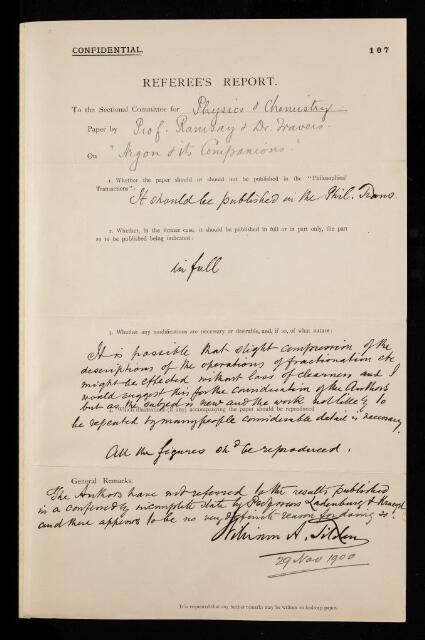 CONFIDENTIAL.
107
REFEREE'S REPORT.
To the Sectional Committee for Physics & Chemistry
Paper by Prof. Ramsay & Dr. Travers
On "Argon & its Companions."
1. Whether the paper should or should not be published in the "Philosophical
Transactions":
It should be published in the Phil. Trans.
2. Whether, in the former case, it should be published in full or in part only, the part
so to be published being indicated:
in full
3. Whether any modifications are necessary or desirable, and, if so, of what nature:
It is possible that slight compression of the
descriptions of the operations of fractionation etc
might be effected without loss of clearness and I
would suggest this for the consideration of the Authors
but as the subject is new and the work not likely to
4. Which illustrations (if any) accompanying the paper should be reproduced
be repeated by many people considerable detail is necessary.
All the figures shd be reproduced.
General Remarks.
The Authors have not referred to the results published
in a confessedly incomplete state by Professors Ladenburg & Kruegel
and there appears to be no very definite reason for doing so.
William A. Tilden
29 Nov 1900
It is requested that any further remarks may be written on foolscap paper.